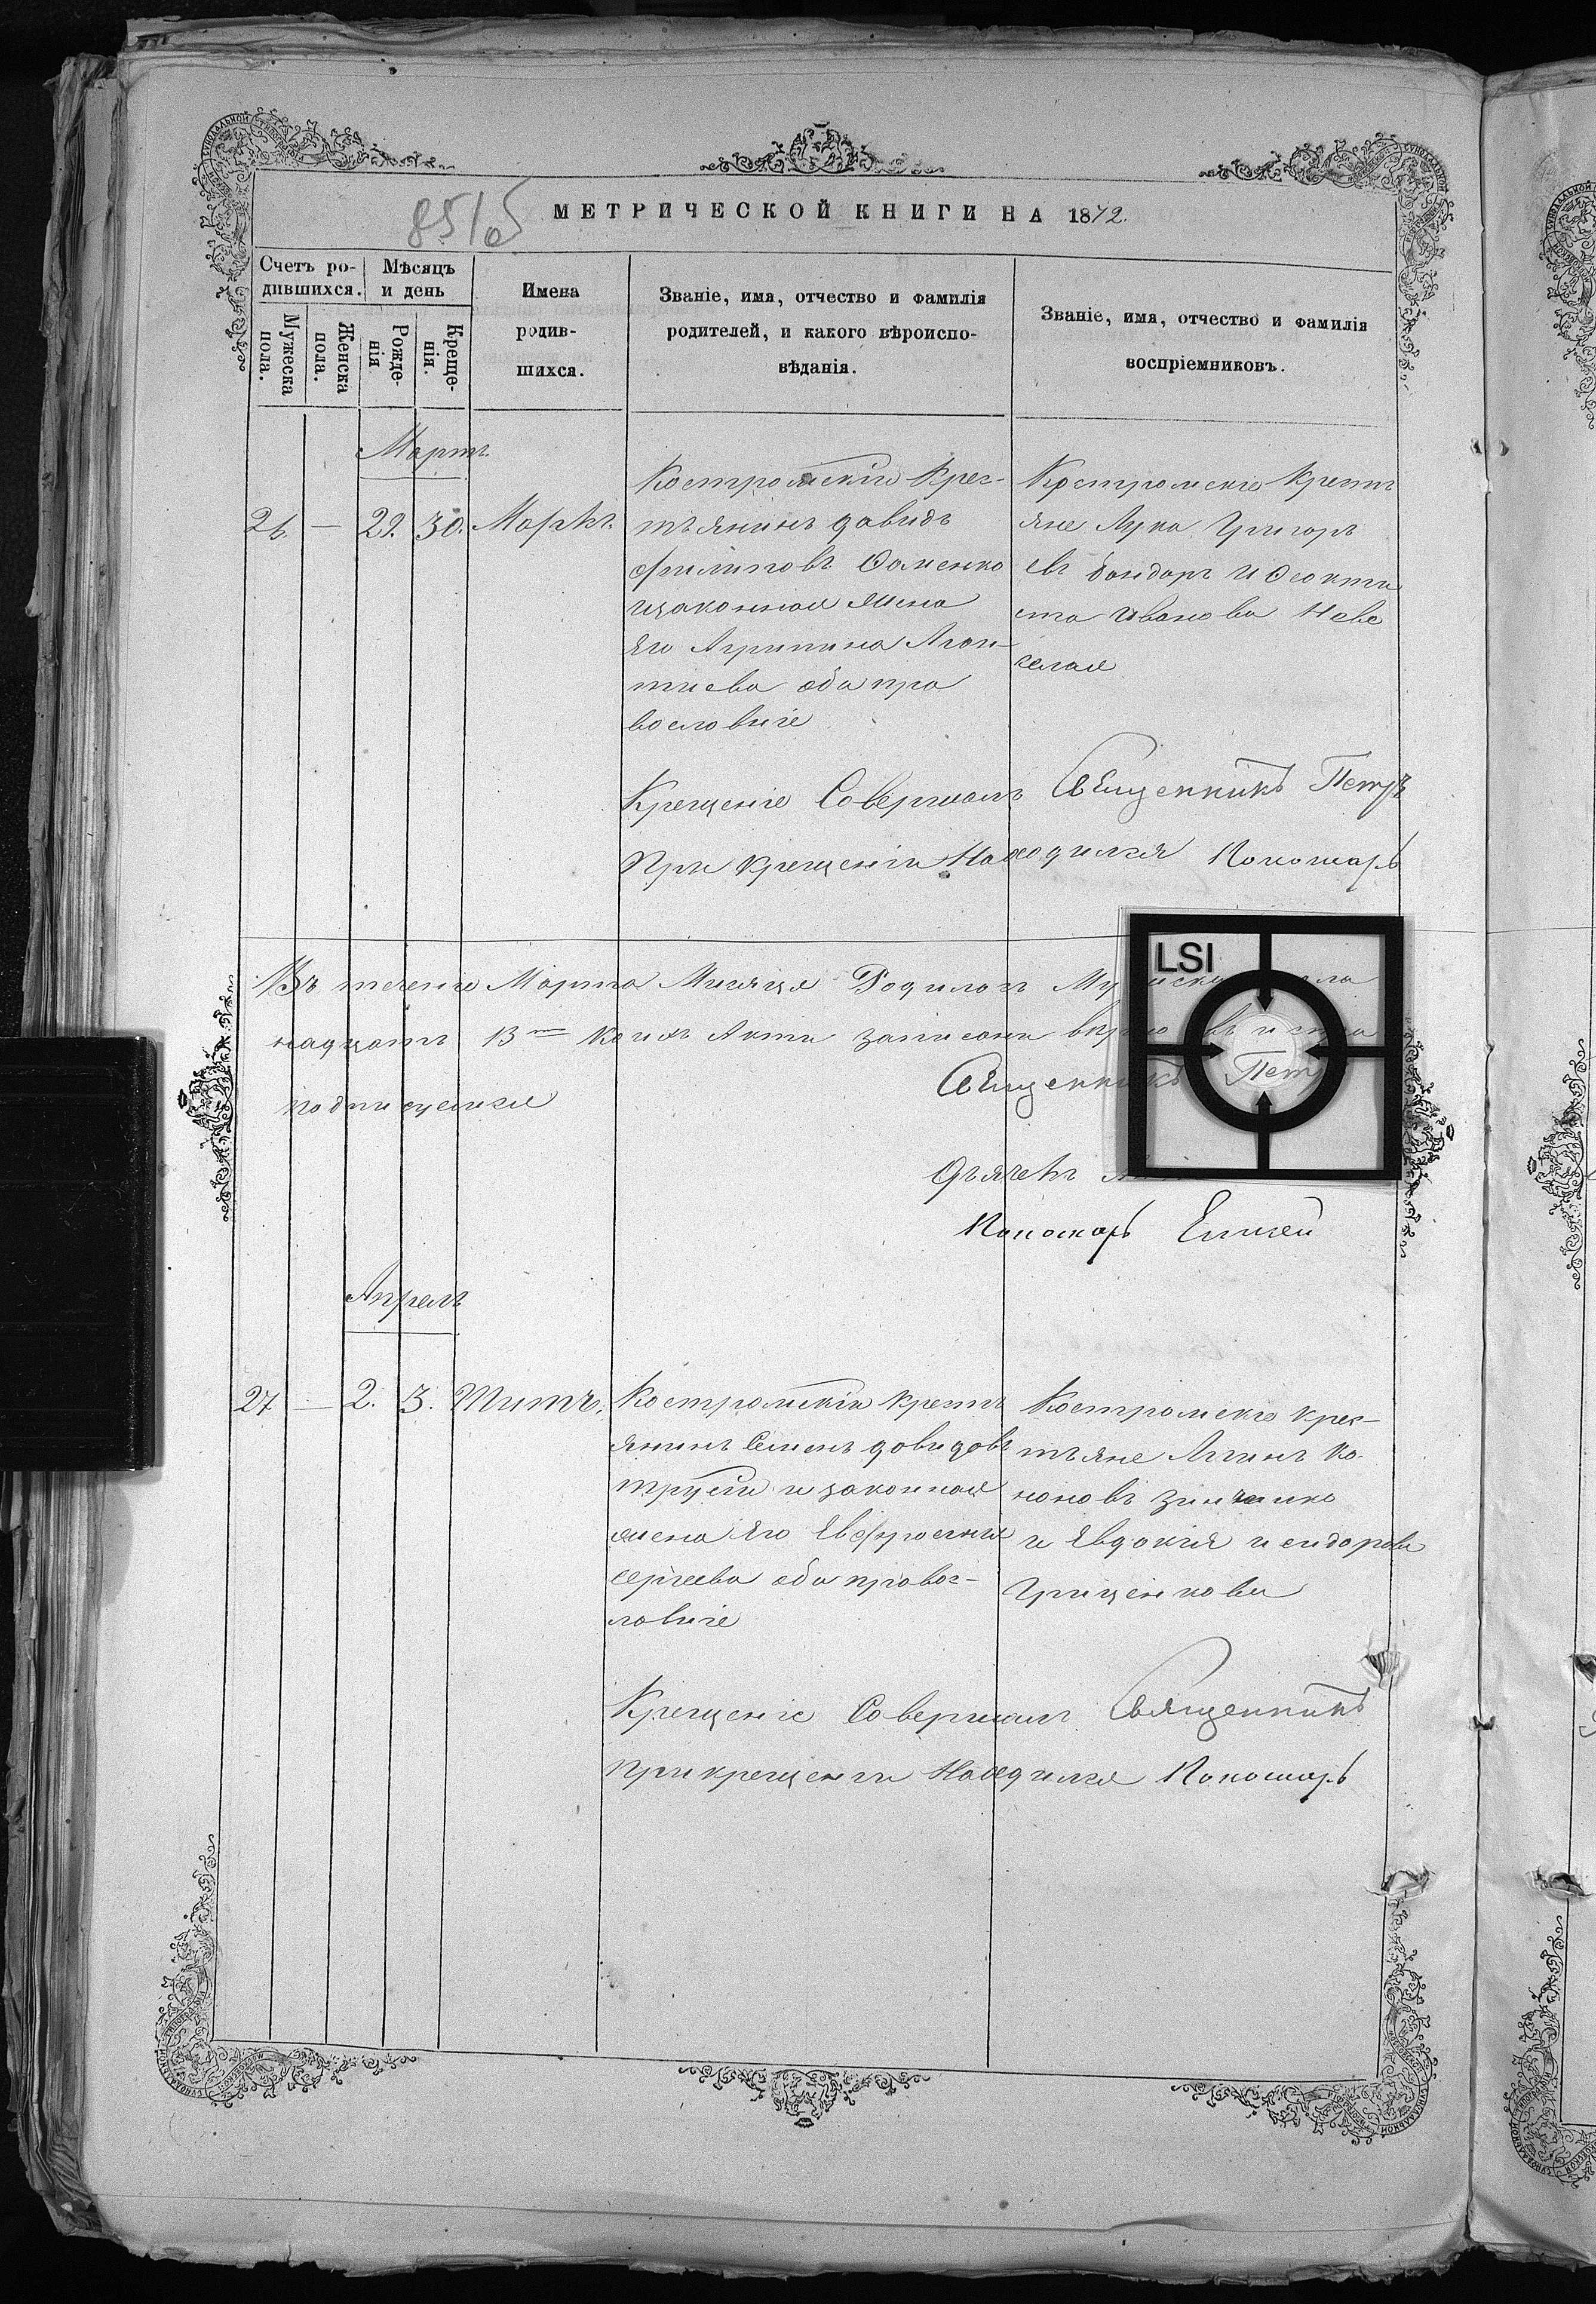 МЕТРИЧЕСКОЙ КНИГИ НА 1872.
Счетъ родившихся.
Мужеска пола.
Женска пола.
Мѣсяцъ и день
Рожденія
Крещенія.
Имена родившихся.
Званіе, имя, отчество и фамилія
родителей, и какого вѣроиспо-
вѣданія.
Званіе, имя, отчество и фамилія
воспріемниковъ.
Мартъ
26. — 29. 30. Маркъ.
Костромскій Крес-
тьянинъ давидъ
Филиповъ Фоменко
и законная жена
его Агрипина
оба пра
вославніе
Костромскіе Кресть
яне Лука Григорь
евъ бондарь и Феокти
ста Иванова Неве
селая
Крещеніе Совершалъ Священникъ Петръ
При крещеніи Находился Пономарь
LSI
Въ теченіе Марта Месяца Родилось
надцать 13 коихъ Акти записани
подписуемся
Священникъ
Дьячекъ
Пономарь Елисей
Апрель
27 — 2. 3. Титъ.
Костромскій крестъ
янинъ Семенъ давидовъ
и законная
жена Его Евфросинія
сергеева оба правос-
лавніе
Костромскіе крес-
тьяне Логинъ Ко-
ноновъ зинченко
и Евдокія исидорова
Грищенкова
Крещеніе Совершалъ Священникъ
При крещеніи Находился Пономарь